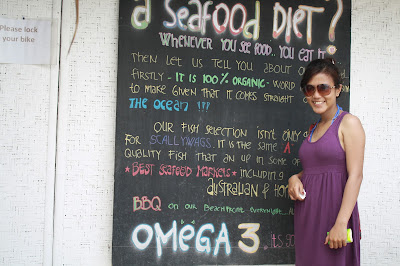 Please lock
your bike
a Seafood Diet?
Whenever you see food.. you eat it
Then let us tell you about ou
firstly - it is 100% organic - world
to make given that it comes straight
the ocean !!!
Our fish selection isn't only
for scallywags. it is the same "A"
quality fish that an up in some of
*Best seafood markets* including
australian & hon
BBQ on our beachfront everynight
OMÉGA 3 its